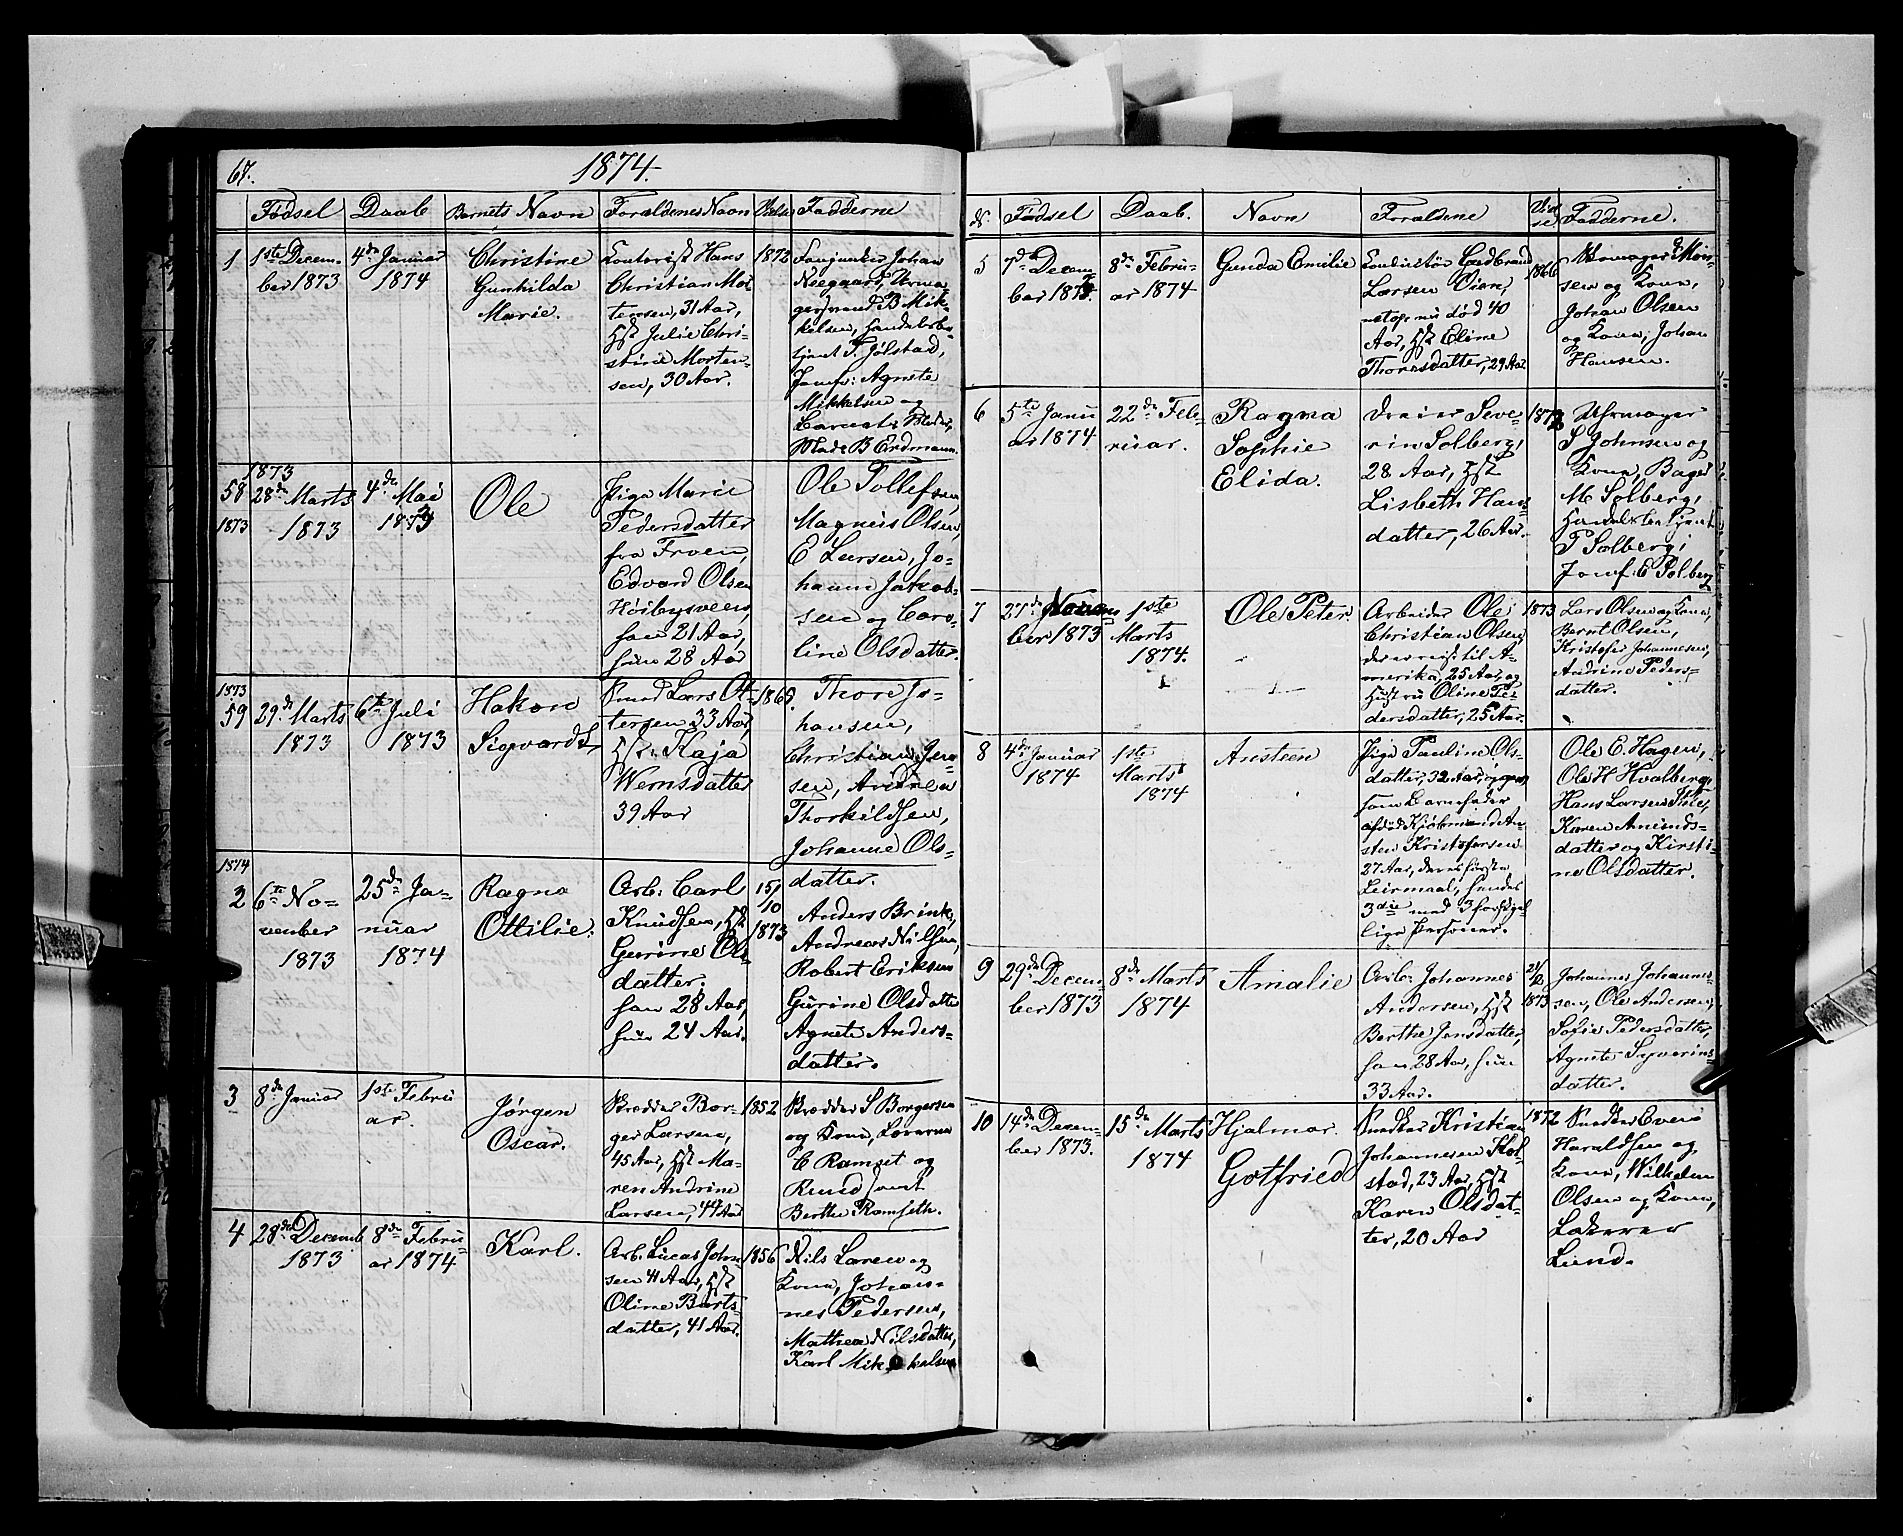 67.
1874.
Fødsel Daab Barnets Navn Forældrenes Navn Fadderne
1 1ste Decem-
ber 1873
4de Januar
1874
Christine
Gunhilda
Marie.
Kontorist Hans
Christian Mor-
tensen, 31 Aar,
Hst Julie Chri-
stine Morten-
sen, 30 Aar.
1873
Fanjunker Johan
Neegaard, Urma-
gersvend B Mik-
kelsen, Handelsbe-
tjent T. Jølstad,
Jomf: Agnete
Mikkelsen og
B Erdmann.
58
1873
1873
28de Marts
1873
4de Mai
1873
Ole
Pige Marie
Pedersdatter
fra Froen,
Edvard Olsen
Høibysveen,
han 21 Aar,
hun 28 Aar
Ole Tollefsen,
Magnus Olsen,
E Larsen, Jo-
hanne Jakob-
sen og Caro-
line Olsdatter.
1873
59 29de Marts
1873
6te Juli
1873
Hakon
Sigvard
Smed Lars Ol-
tersen 33 Aar,
Hst: Kaja
Wernsdatter
39 Aar
1865.
Thore Jo-
hansen,
Christian Jen-
sen, Andrea
Thorkildsen,
Johanne Ols-
datter.
1874
2 6te No-
vember
1873
25de Ja-
nuar
1874
Ragna
Ottilie.
Arb: Carl
Knudsen, Hst
Gurine Ols-
datter.
han 28 Aar,
hun 24 Aar.
15/
10
1873
Anders Brink,
Andreas Nilsen,
Robert Eriksen
Gurine Olsdatter
Agnete Anders-
datter.
3 8de Januar
1ste Febru
ar.
Jørgen
Oscar.
Skrædder Bør-
ger Larsen,
45 Aar, Hst Ma-
ren Andrine
Larsen, 44 Aar
1852
Skrædder S Børgersen
og Kone,
C Ramset og
Berthe Ramseth.
4 28de Decemb
1873
8de Febru-
ar 1874
Karl.
Arb. Lucas John-
sen 41 Aar, Hst
Oline Bærts-
datter, 41 Aar.
1856
Nils Laren og
Kone, Johan-
nes Pedersen,
Mathea Nilsdatter,
Karl Mikkelsen
N. Fødsel Daab. Navn Forældrene Vid
se Fadderne.
5 7de Decem-
ber 1873.
8de Febru-
ar 1874
Gunda Emilie
Konduktør Gudbrand
Larsen Øien,
netop nu død 40
Aar, Hst Eline
Thoresdatter, 29 Aar
1866
Skomager Mor-
sen og Kone,
Johan Olsen
og Kone, Johan
Hansen.
6 5te Janu
ar 1874
22de Feb-
ruar.
Ragna
Sophie
Elida.
Dreier Seve-
rin Solberg,
28 Aar, Hst
Lisbeth Hans
datter, 26 Aar.
1872
Uhrmager
S Johnsen og
Kone, Bager
M Solberg,
Handelsbetjent
P Solberg,
Jomf: E Solberg
7 27de Novem
ber 1873
1ste
Marts
1874.
Ole Peter.
Arbeider Ole
Christian Olsen,
der er reist til A-
merika, 25 Aar, og
Hustru Oline Pe-
dersdatter, 25 Aar.
1873
Lars Olsen og Kone,
Bernt Olsen,
Kristofer Johannesen,
Andrine Peders-
datter.
8 4de Januar
1874
1ste
Marts
1874
Ansteen
Pige Pauline Ols-
datter, 32 Aar, opgiver
som Barnefader
afdød Kjøbmand An-
sten Kristofersen
27 Aar, deres første
Leirmaal, hendes
3die med 3 forskjel-
lige Personer.
Ole E. Hagen,
Ole H Hvalberg,
Hans Larsen
Karen Amunds-
datter og Kirsti-
ne Olsdatter.
9 29de Decem-
ber 1873
8de Marts
1874
Amalie
Arb: Johannes
Andersen, Hst
Berthe Jensdatter,
han 28 Aar, hun
33 Aar.
1873
Johannes Johannes-
sen, Ole Andersen,
Sofie Pedersdatter,
Agnete Syverins-
datter.
10 14de Decem-
ber 1873.
15de Marts
1874
Hjalmar
Gotfried
Snedker Kristian
Johannesen Kol-
stad, 23 Aar, Hst
Karen Olsdat-
ter, 20 Aar
1872
Snedker Even
Haraldsen og
Kone, Wilhelm
Olsen og Kone,
Lakerer
Lund.